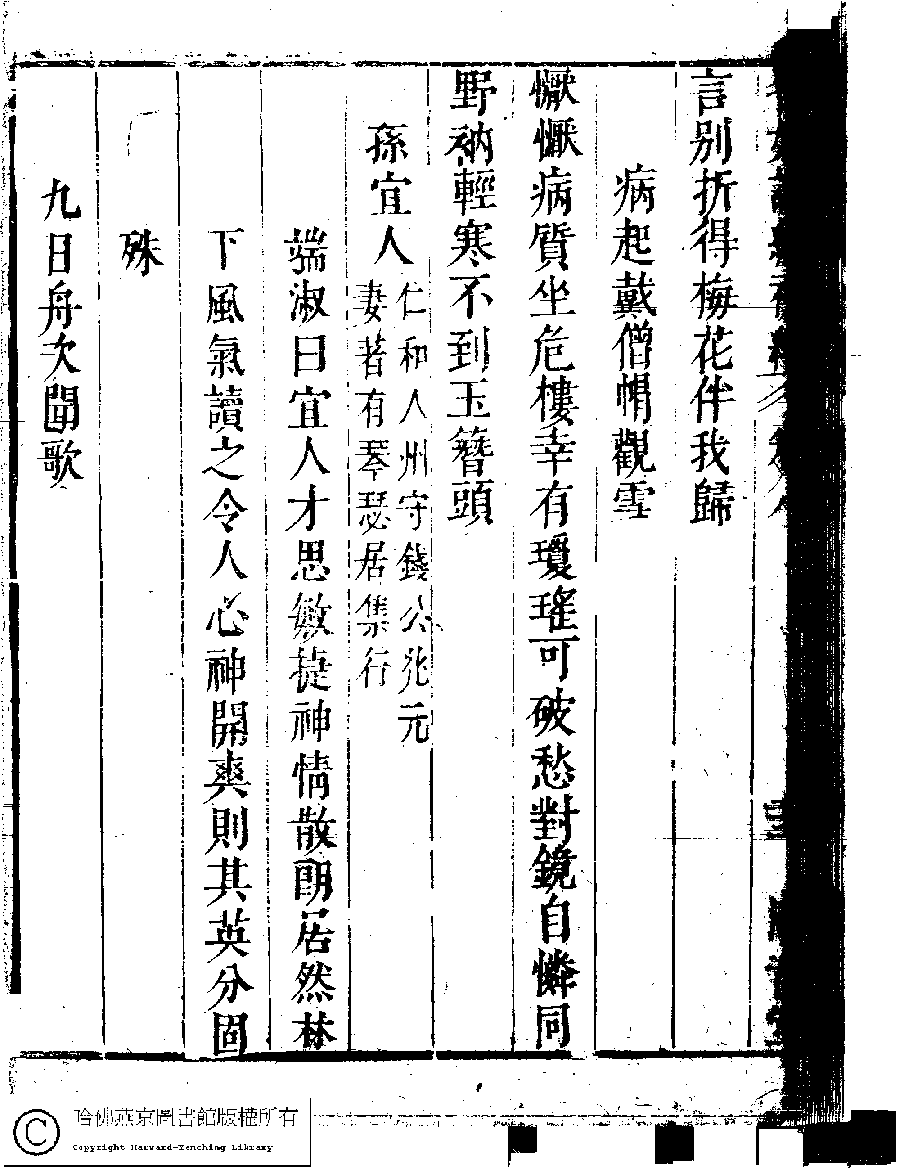 言别折得梅花伴我歸
病起戴僧帽觀雪
懨懨病質坐危樓幸有瓊瑤可破愁對鏡自憐同
野衲輕寒不到玉簪頭
孫宜人
仁和人州守錢公兆元
妻著有琴瑟居集行
端淑曰宜人才思敏捷神情散朗居然林
下風氣讀之令人心神開爽則其英分固
殊
九日舟次聞歌
哈佛燕京圖書館版權所有
Copyright Harvard-Yenching Library